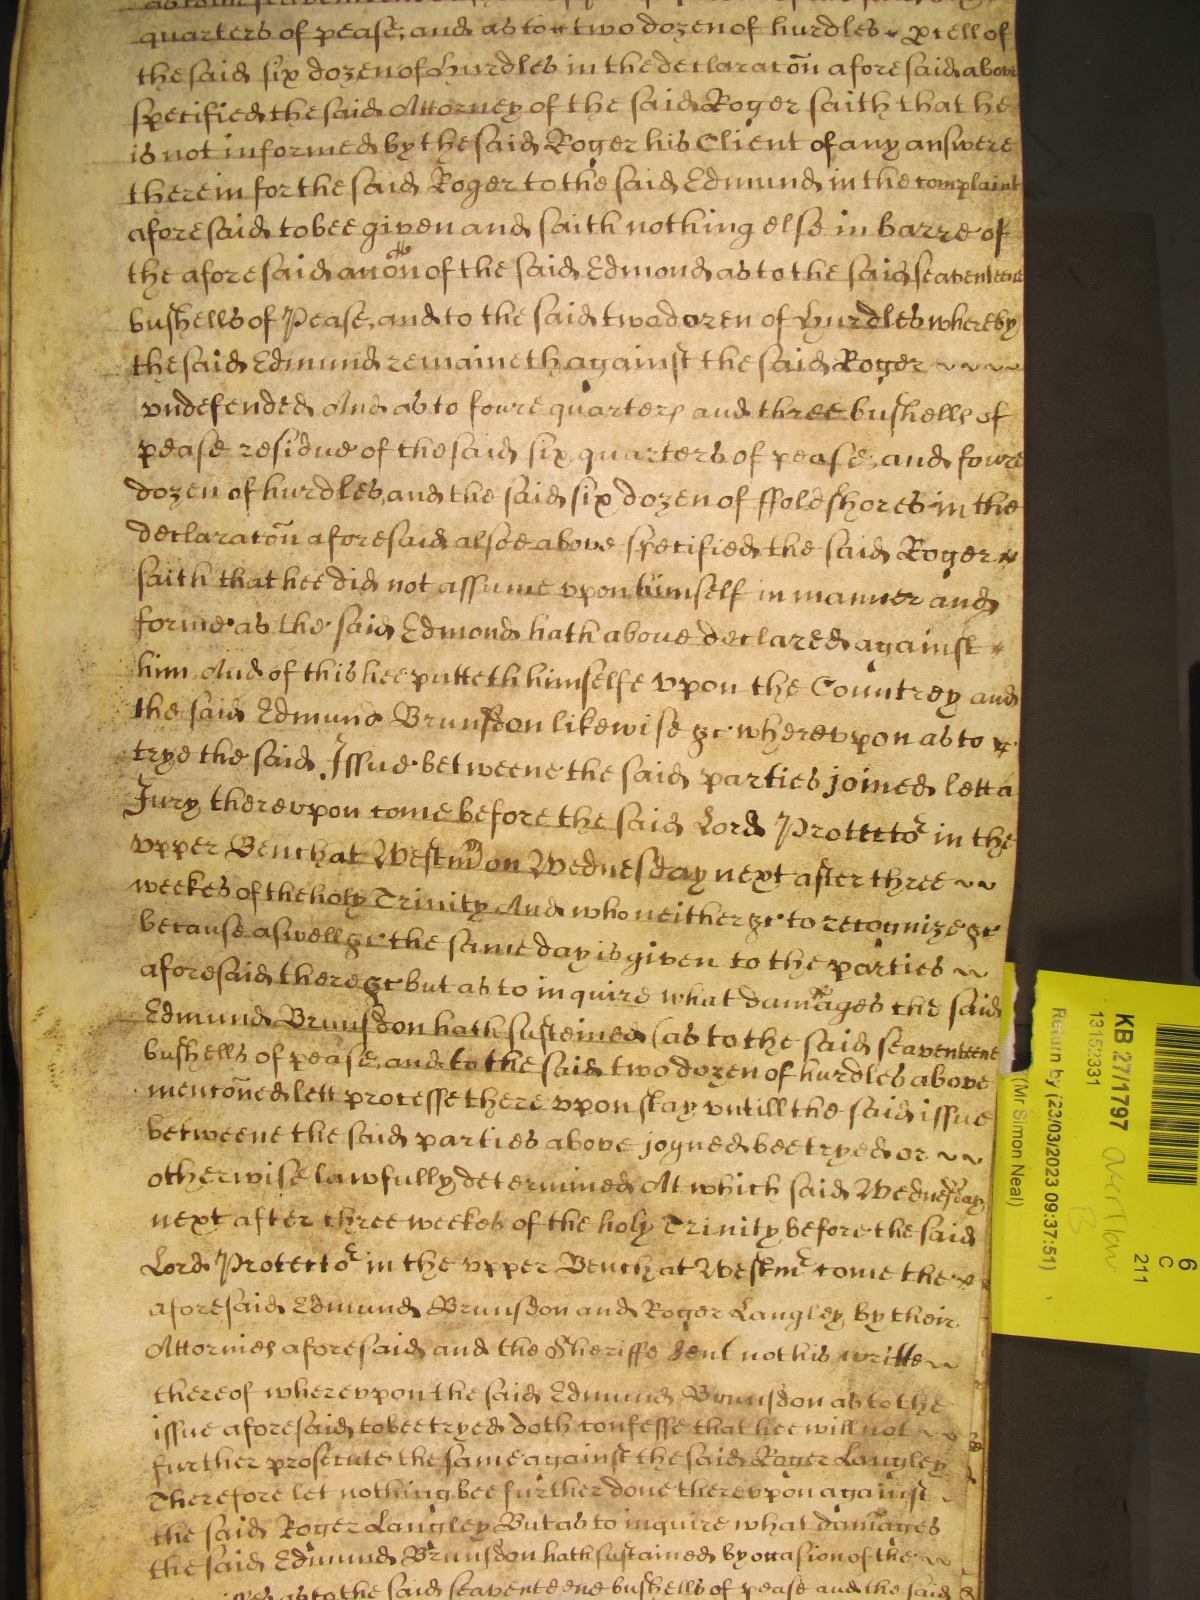 quarters of pease, and as to two dozen of hurdles pcell of
the said six dozen of Hurdles in the declaracon aforesaid above
specified the said Attorney of the said Roger saith that he
is not informed by the said Roger his Client of any answere
therein for the said Roger to the said Edmund in the complaint
aforesaid to bee given and saith nothing else in barre of
the aforesaid accon of the said Edmond as to the said seaventeene
bushells of Pease, and to the said two dozen of Hurdles whereby
the said Edmund remaineth against the said Roger
vndefended And as to foure quarters and three bushells of
pease residue of the said six quarters of pease, and foure
dozen of hurdles, and the said six dozen of ffoldshores in the
declaracon aforesaid alsoe above specified the said Roger
saith that hee did not assume vpon himself in manner and
forme as the said Edmond hath above declared against
him And of this hee putteth himselfe vpon the Countrey and
the said Edmund Brunsdon likewise &c wherevpon as to
trye the said Issue betweene the said parties joined lett a
Jury therevpon come before the said Lord Protector in the
vpper Bench at Westmr on Wednesday next after three
weekes of the holy Trinity And who neither &c to recognize &c
because aswell &c the same day is given to the parties
aforesaid there &c but as to inquire what damages the said
Edmund Brunsdon hath susteined (as to the said seaventeene
bushells of pease, and to the said two dozen of hurdles above
menconed lett processe there vpon stay vntill the said issue
betweene the said parties above joyned bee tryed or
otherwise lawfully determined At which said Wednesday
next after three weekes of the holy Trinity before the said
Lord Protector in the vpper Bench at Westmr come the
aforesaid Edmund Brunsdon and Roger Langley by their
Attornies aforesaid and the Sheriffe sent not his writte
thereof wherevpon the said Edmund Brunsdon as to the
issue aforesaid to bee tryed doth confesse that hee will not
further prosecute the same against the said Roger Langley
Therefore let nothing bee further done therevpon against
the said Roger Langley But as to inquire what damages
the said Edmund Brunsdon hath sustained by occasion of the
as to the said seaventeene bushells of pease and the said
KB 27/1797
13152331
Return by (23/03/2023 09:37:51)
(Mr Simon Neal)
Overflow
B
6
C
211